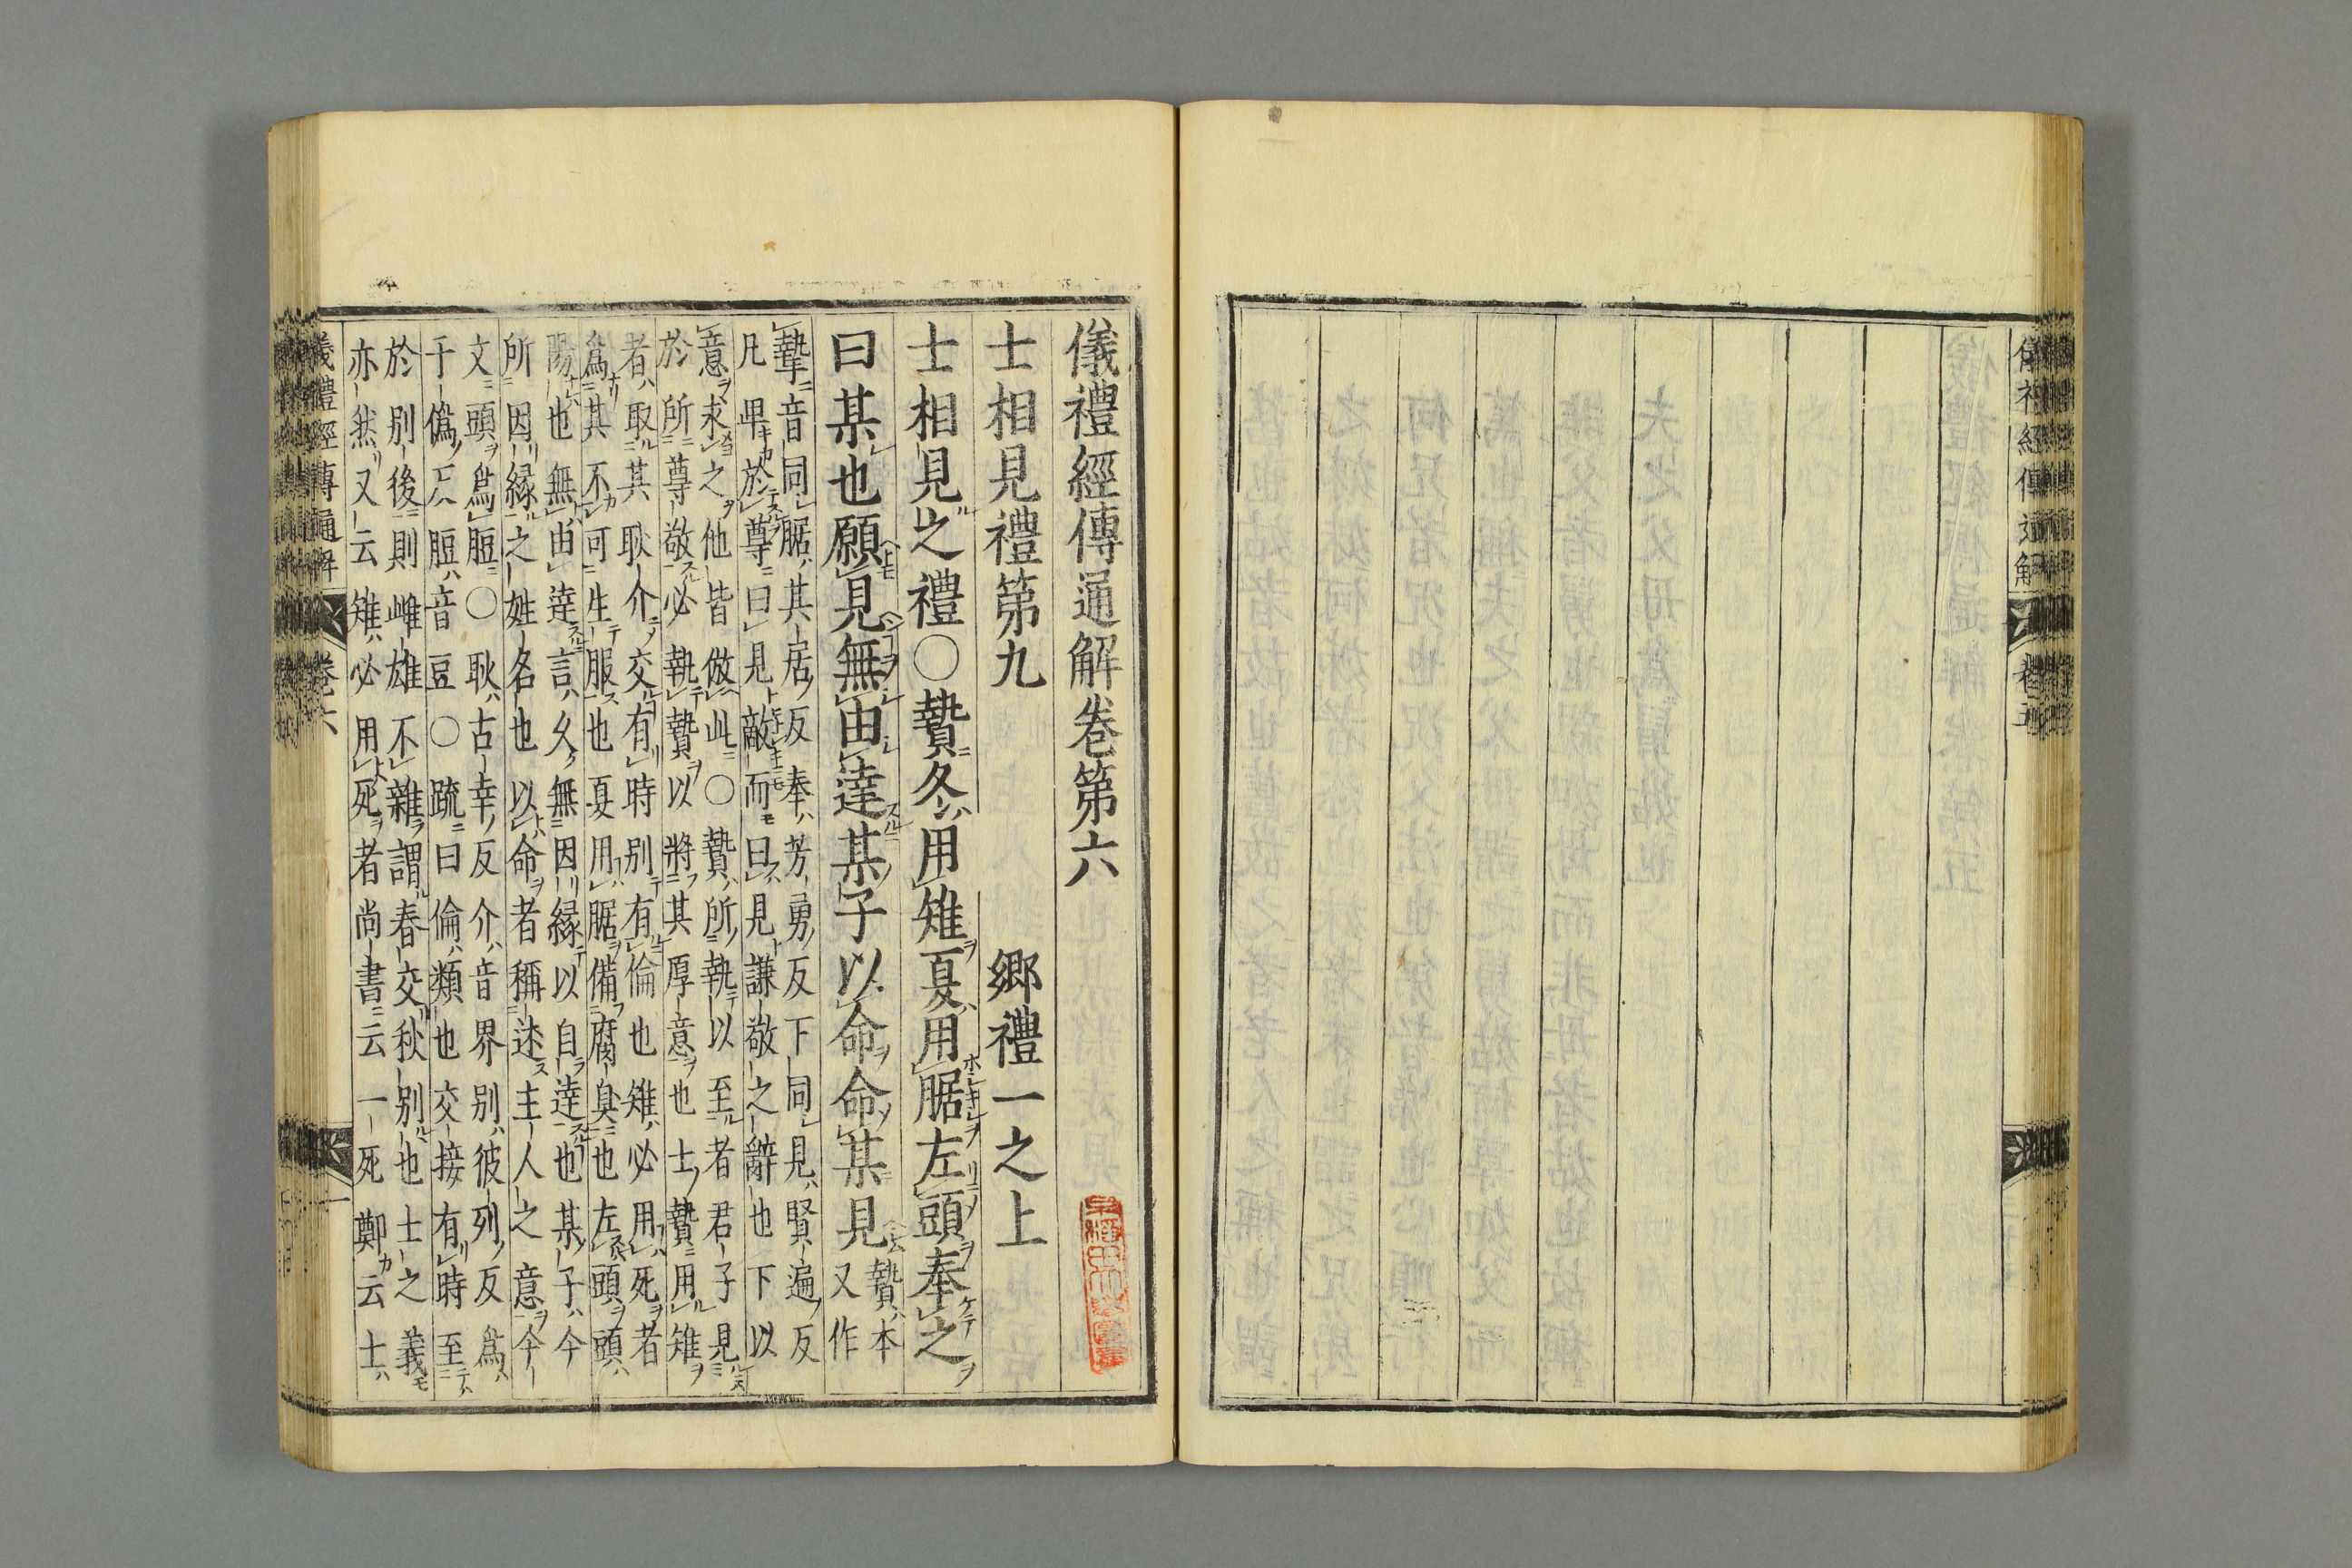 儀禮經傳通解卷第六
士相見禮第九 鄉禮一之上
士相見之禮○贄冬用雉夏用腒左頭奉之
曰某也願見無由達某子以命命某見贄本
又作
摯音同腒其居反奉芳勇反下同見賢遍反
凡卑於尊曰見敵而曰見謙敬之辭也下以
意求之他皆倣此○贄所執以至者君子見
於所尊敬必執贄以將其厚意也士贄用雉
者取其耿介交有時別有倫也雉必用死者
爲其不可生服也夏用腒備腐臭也左頭頭
陽也無由達言久無因緣以自達也某子今
所因緣之姓名也以命者稱述主人之意今
文頭爲脰○耿古幸反介音界別彼列反爲
于僞反脰音豆○疏曰倫類也交接有時至
於別後則雌雄不雜謂春交秋別也士之義
亦然又云雉必用死者尚書云一死鄭云士
儀禮經傳通解 卷六 一